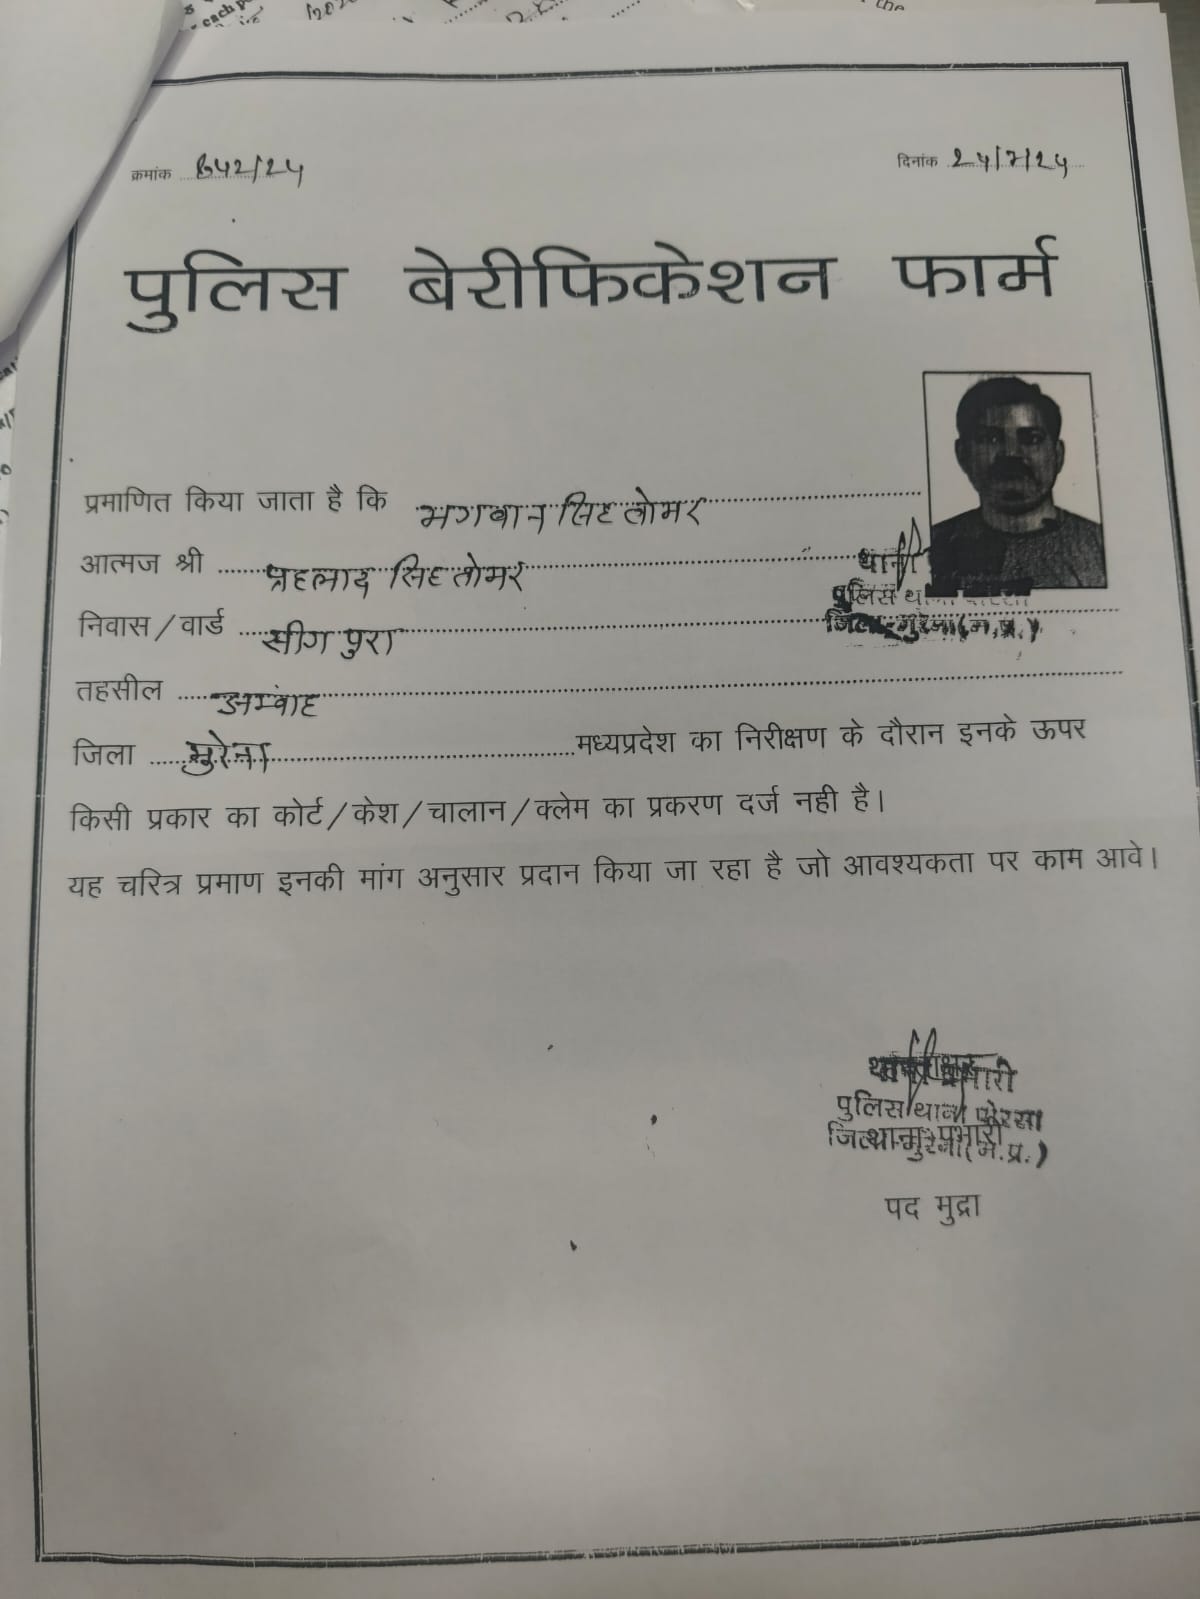 क्रमांक 642/24
दिनांक 24/7/24
पुलिस बेरीफिकेशन फार्म
प्रमाणित किया जाता है कि भगवान सिंह तोमर
आत्मज श्री प्रहलाद सिंह तोमर
निवास/वार्ड सींगपुरा
तहसील अम्बाह
जिला मुरैना मध्यप्रदेश का निरीक्षण के दौरान इनके ऊपर
किसी प्रकार का कोर्ट/केश/चालान/क्लेम का प्रकरण दर्ज नही है।
यह चरित्र प्रमाण इनकी मांग अनुसार प्रदान किया जा रहा है जो आवश्यकता पर काम आवे।
पुलिस थाना पोरसा
पद मुद्रा